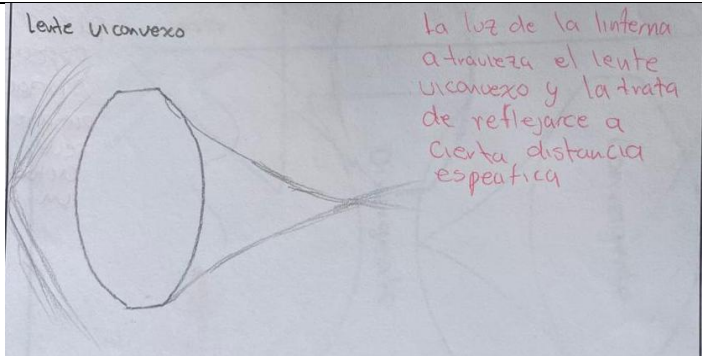 Lente viconvexo
La luz de la linterna
atravieza el lente
viconvexo y la trata
de reflejarce a
cierta distancia
especifica